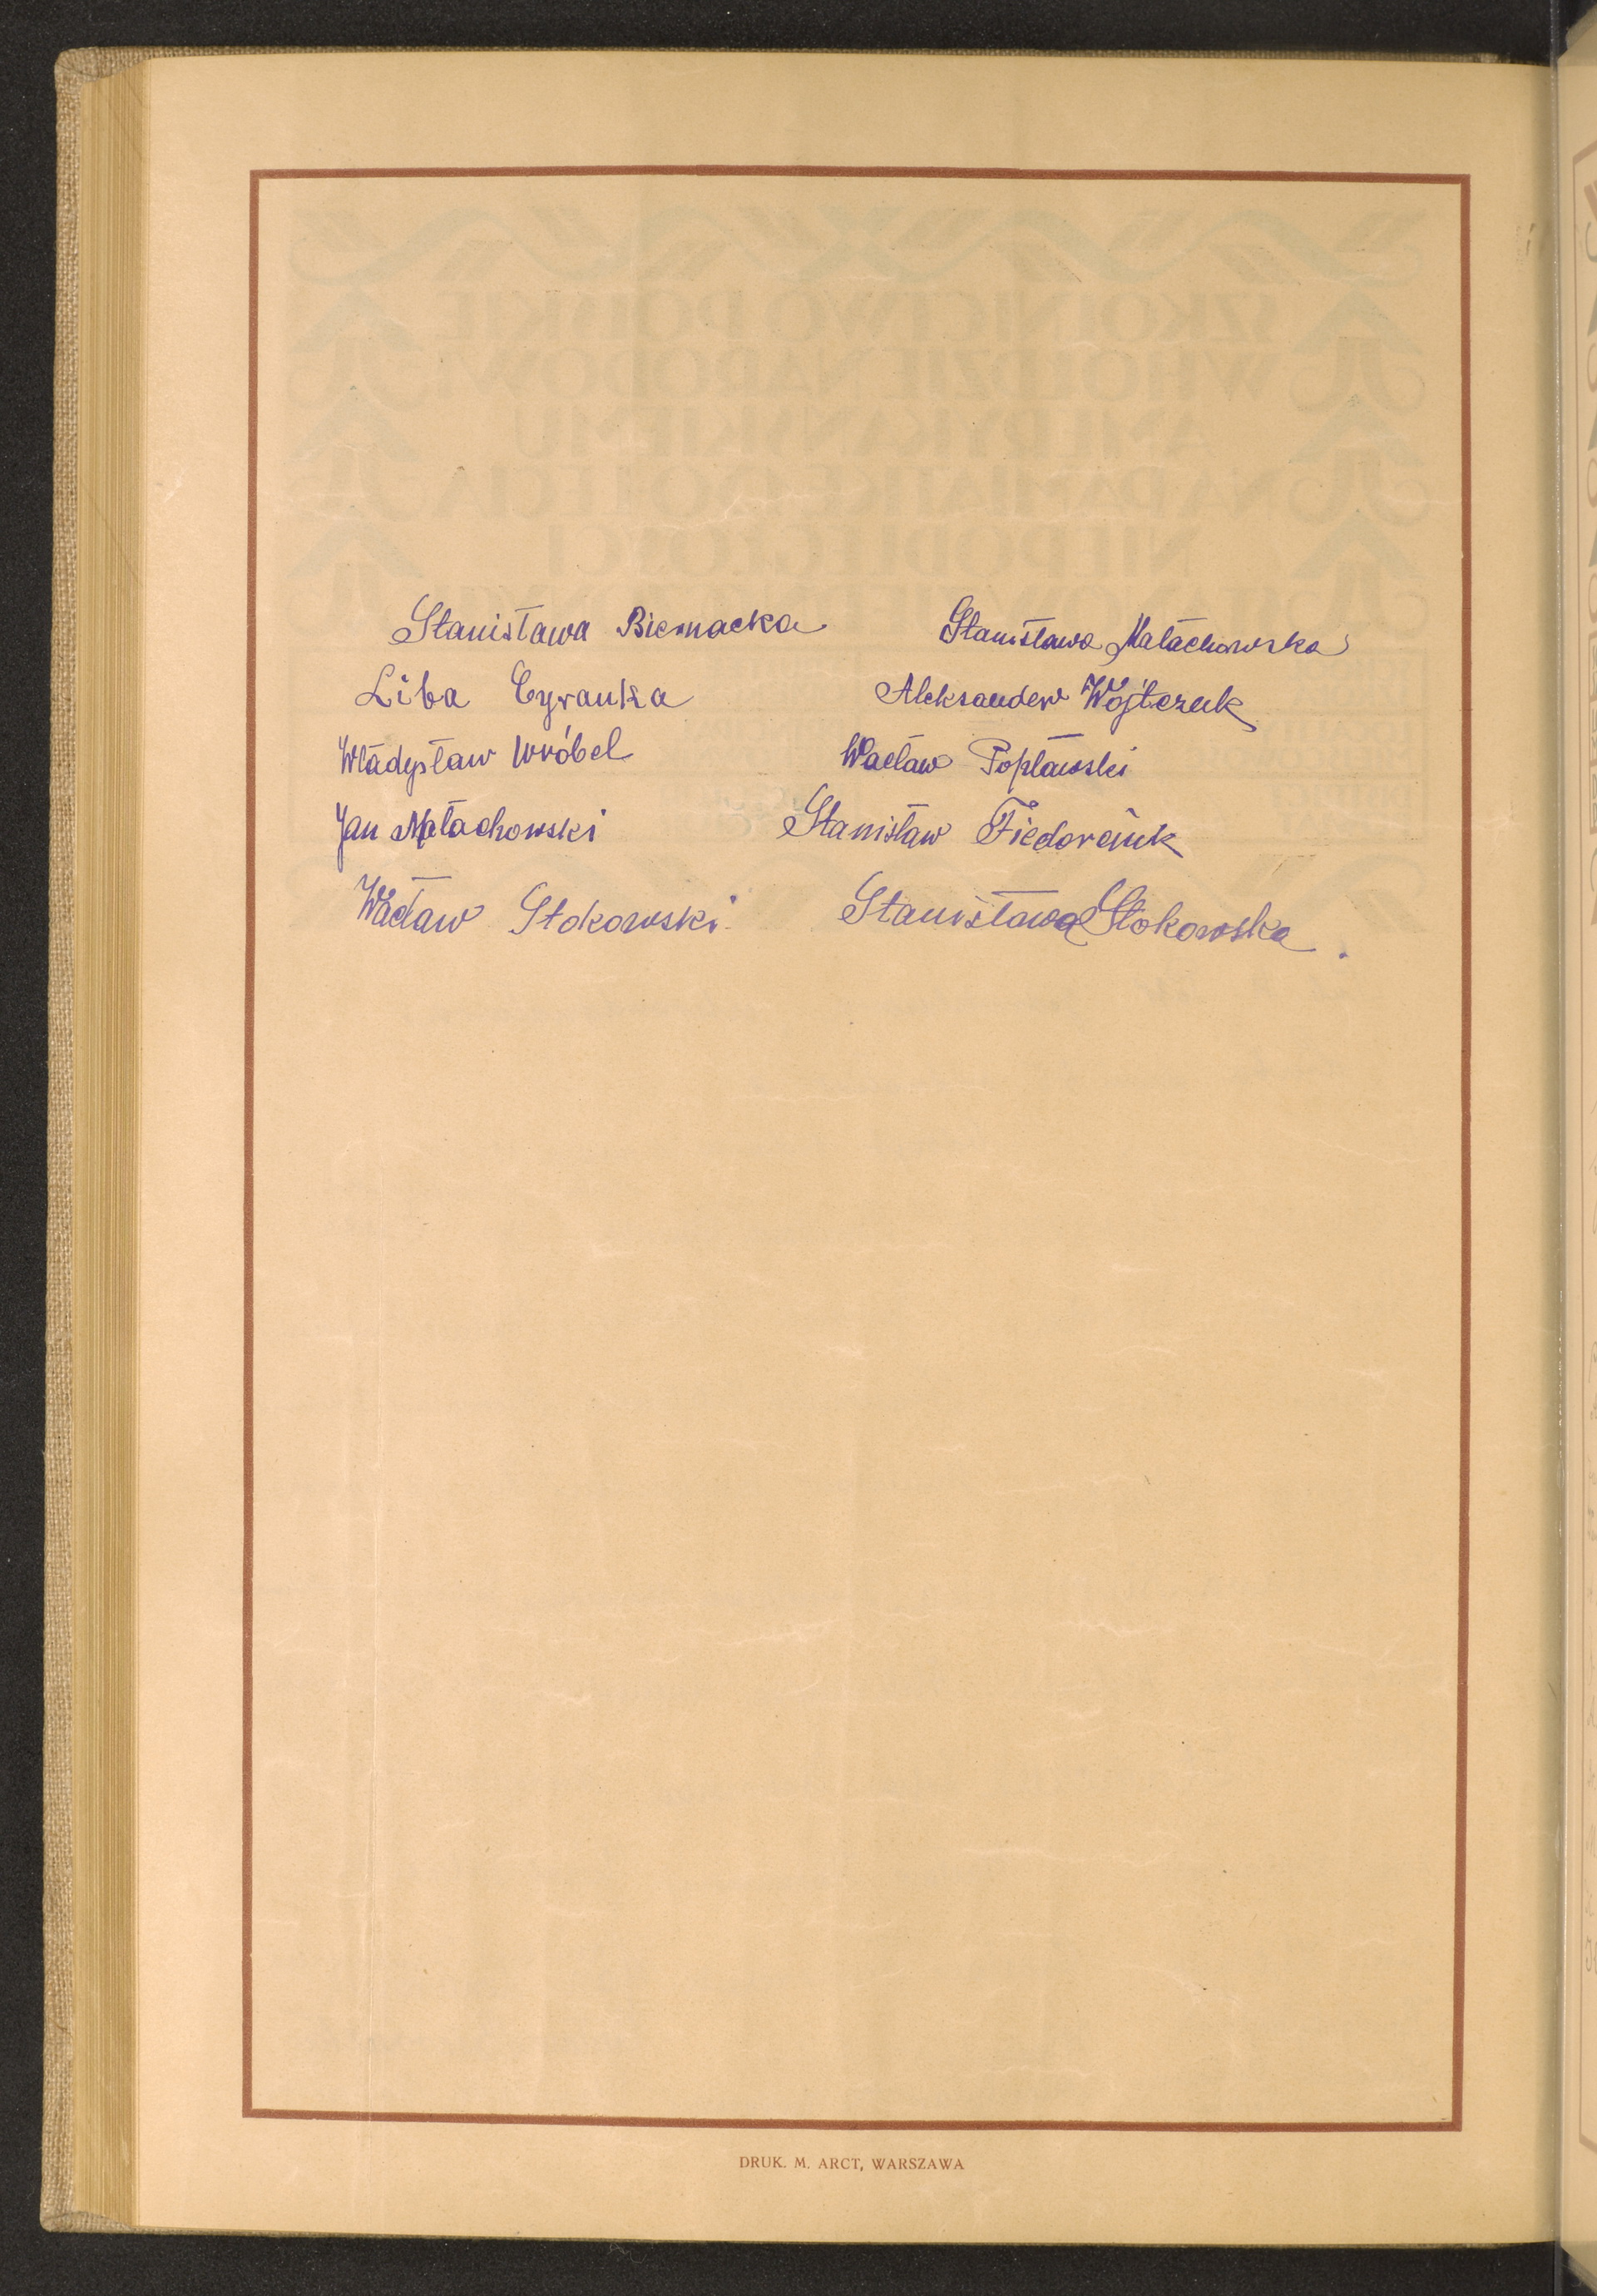 Stanisława Biernacka Stanisława Małachowska
Liba Cyranka Aleksander Wójtczuk
Władysław Wróbel Wacław Popławski
Jan Małachowski Stanisław Fiedorciuk
Wacław Stokowski Stanisława Stokowska
DRUK. M. ARCT, WARSZAWA